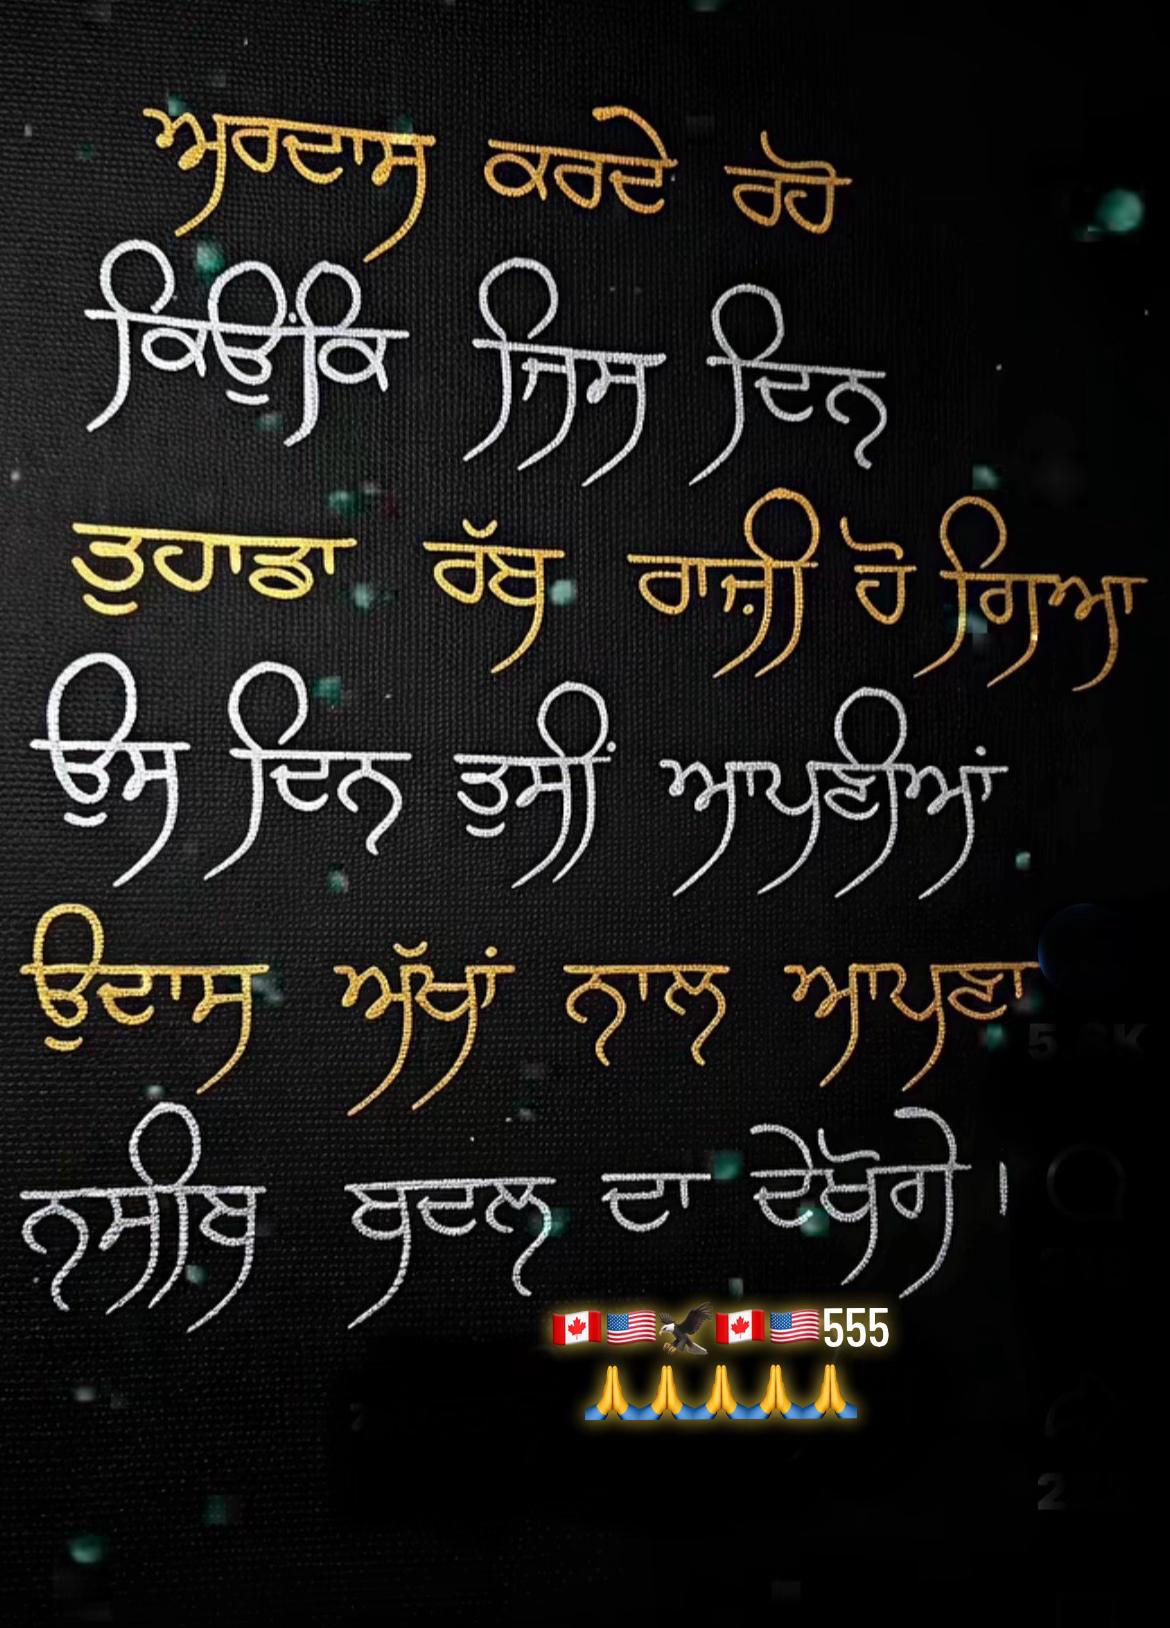 ਅਰਦਾਸ ਕਰਦੇ ਰਹੋ
ਕਿਉਂਕਿ ਜਿਸ ਦਿਨ
ਤੁਹਾਡਾ ਰੱਬ ਰਾਜ਼ੀ ਹੋ ਗਿਆ
ਉਸ ਦਿਨ ਤੁਸੀਂ ਆਪਣੀਆਂ
ਉਦਾਸ ਅੱਖਾਂ ਨਾਲ ਆਪਣਾ
ਨਸੀਬ ਬਦਲ ਦਾ ਦੇਖੋਗੇ ।
🇨🇦🇺🇸🦅🇨🇦🇺🇸555
🙏🙏🙏🙏🙏